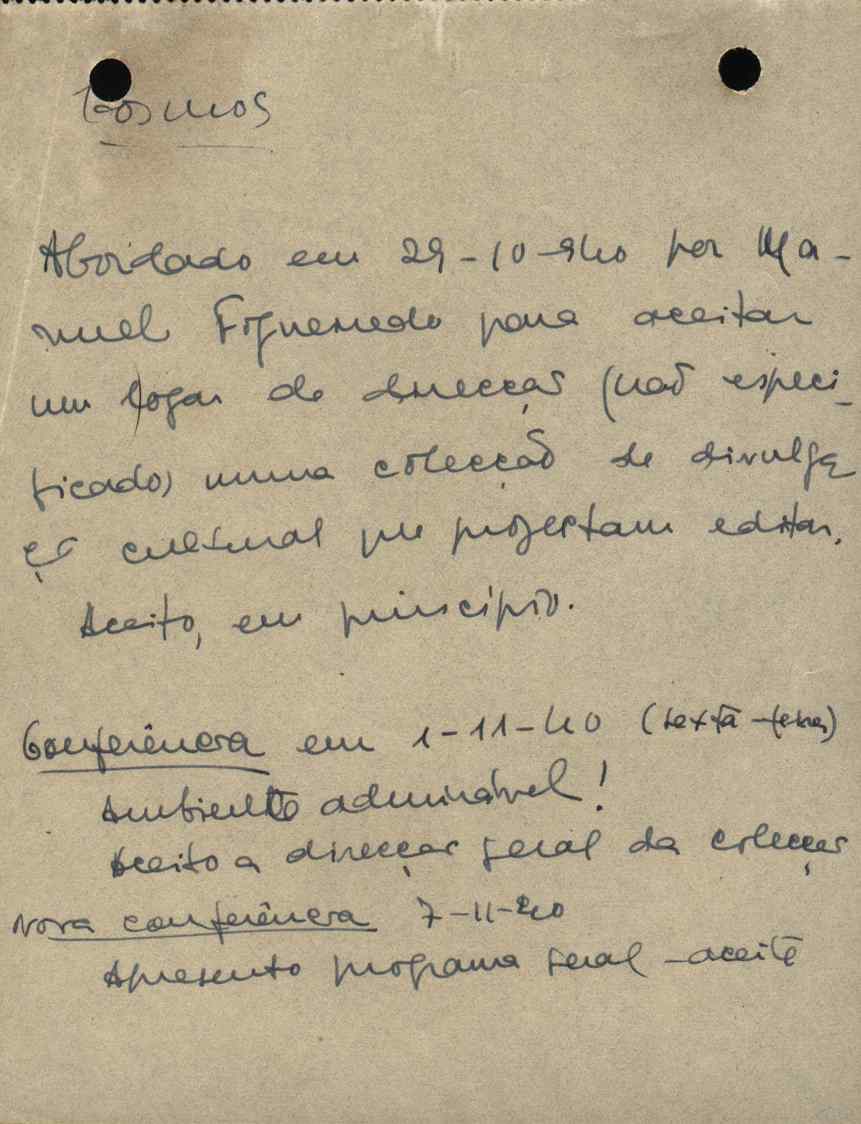 Cosmos
Abordado em 29-10-940 por Ma-
nuel Figueiredo para aceitar
um logar de direcção (não especi-
ficado) numa colecção de divulga
ção cultural que projectam editar.
Aceito, em princípio.
Conferência em 1-11-40 (sexta-feira)
Ambiente admirável!
Aceito a direcção geral da colecção
Nova conferência 7-11-40
Apresento programa geral - aceite